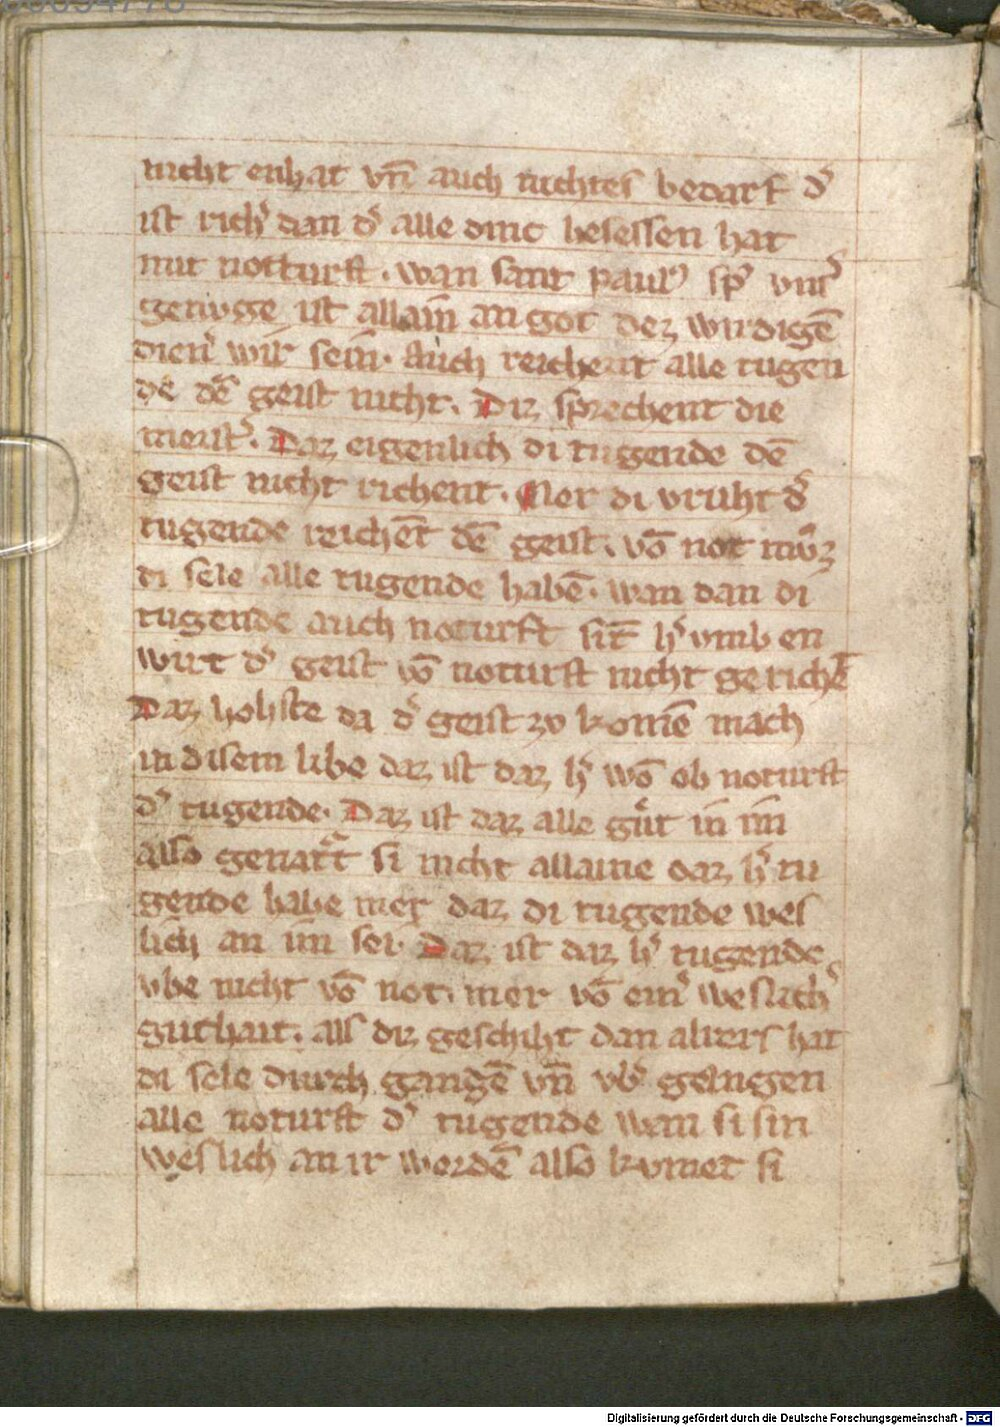 nicht enhat vn̄ auch nichtes bedarf d᾽
ist rich᾽ dan d᾽ alle dinc besessen hat
mit notturft . wan sant paul᾽ sp᾽ vns᾽
genvge ist allain an got dez wirdigē
dien᾽ wir sein . auch reichent alle tugen
de dē geist nicht . Diz sprechent die
meist᾽ . Daz eigenlich di tugende dē
geist nicht richent . Mer di vruht d᾽
tugende reichēt dē geist . vō not mvͦz
di sele alle tugende habē . wan dan di
tugende auch noturft sīt h᾽ vmb en
wirt d᾽ geist vō noturft nicht gerichēt
Daz hohste da d᾽ geist zv komē mach
in disem libe daz ist daz h᾽ wō ob noturft
d᾽ tugende . Daz ist daz alle guͤt in im
also genatᵉt si nicht allaine daz h᾽ tu
gende habe mer daz di tugende wes
lich an im sei . Daz ist daz h᾽ tugende
vbe nicht vō not . mer vō ein᾽ weslich᾽
guthait . als diz geschiht dan alrers hat
di sele durch gangē vn̄ vb᾽ gangen
alle noturft d᾽ tugende wan si sin
weslich an ir wordē also kvmet si
Digitalisierung gefördert durch die Deutsche Forschungsgemeinschaft - DFG